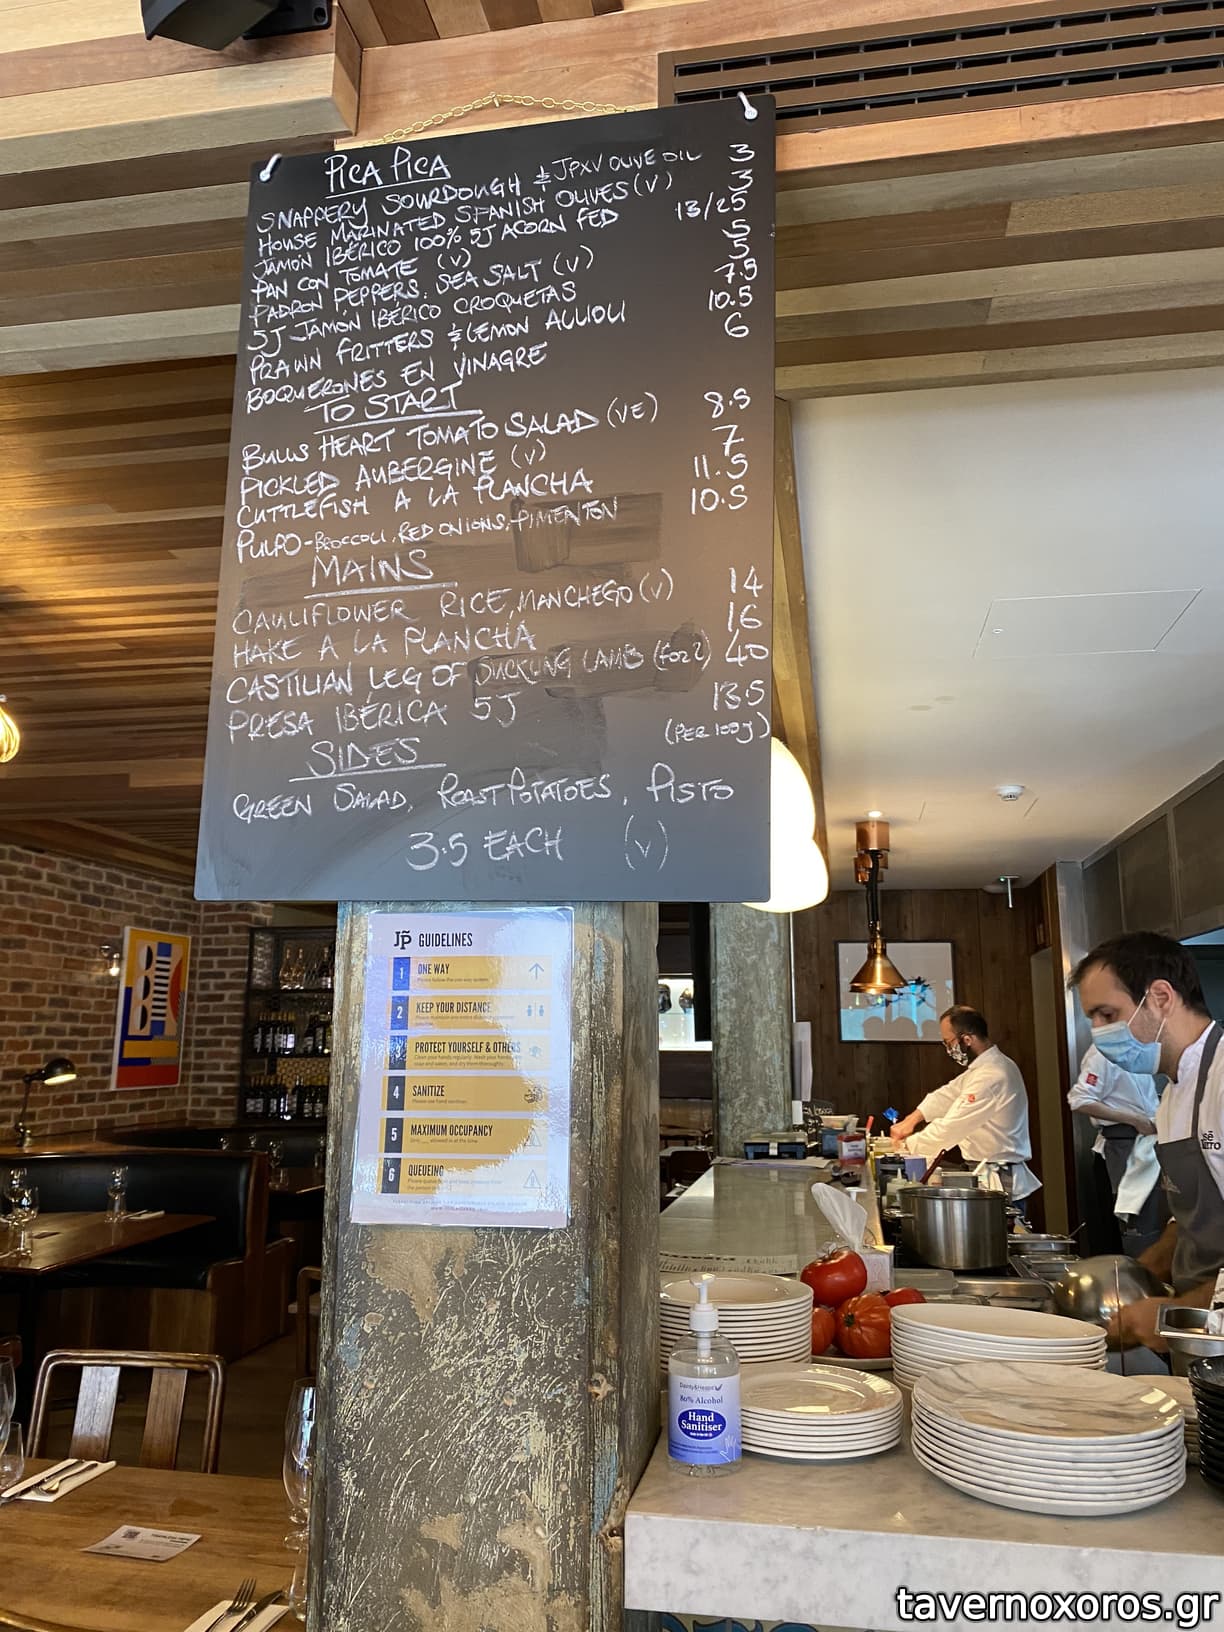 PICA PICA
SNAPPERY SOURDOUGH & JPXV OLIVE OIL 3
HOUSE MARINATED SPANISH OLIVES (V) 3
JAMÓN IBÉRICO 100% 5J ACORN FED 13/25
PAN CON TOMATE (V) 5
PADRON PEPPERS, SEA SALT (V) 5
5J JAMÓN IBÉRICO CROQUETAS 7.5
PRAWN FRITTERS & LEMON ALLIOLI 10.5
BOQUERONES EN VINAGRE 6
TO START
BULLS HEART TOMATO SALAD (VE) 8.5
PICKLED AUBERGINE (V) 7
CUTTLEFISH A LA PLANCHA 11.5
PULPO - BROCCOLI, RED ONIONS, PIMENTON 10.5
MAINS
CAULIFLOWER RICE, MANCHEGO (V) 14
HAKE A LA PLANCHA 16
CASTILIAN LEG OF SUCKLING LAMB (FOR 2) 40
PRESA IBÉRICA 5J 13.5
(PER 100g)
SIDES
GREEN SALAD, ROAST POTATOES, PISTO
3.5 EACH (V)
JP GUIDELINES
1 ONE WAY
2 KEEP YOUR DISTANCE
PROTECT YOURSELF & OTHERS
4 SANITIZE
Please use hand sanitiser.
5 MAXIMUM OCCUPANCY
6 QUEUEING
80% Alcohol
Hand
Sanitiser
tavernoxoros.gr